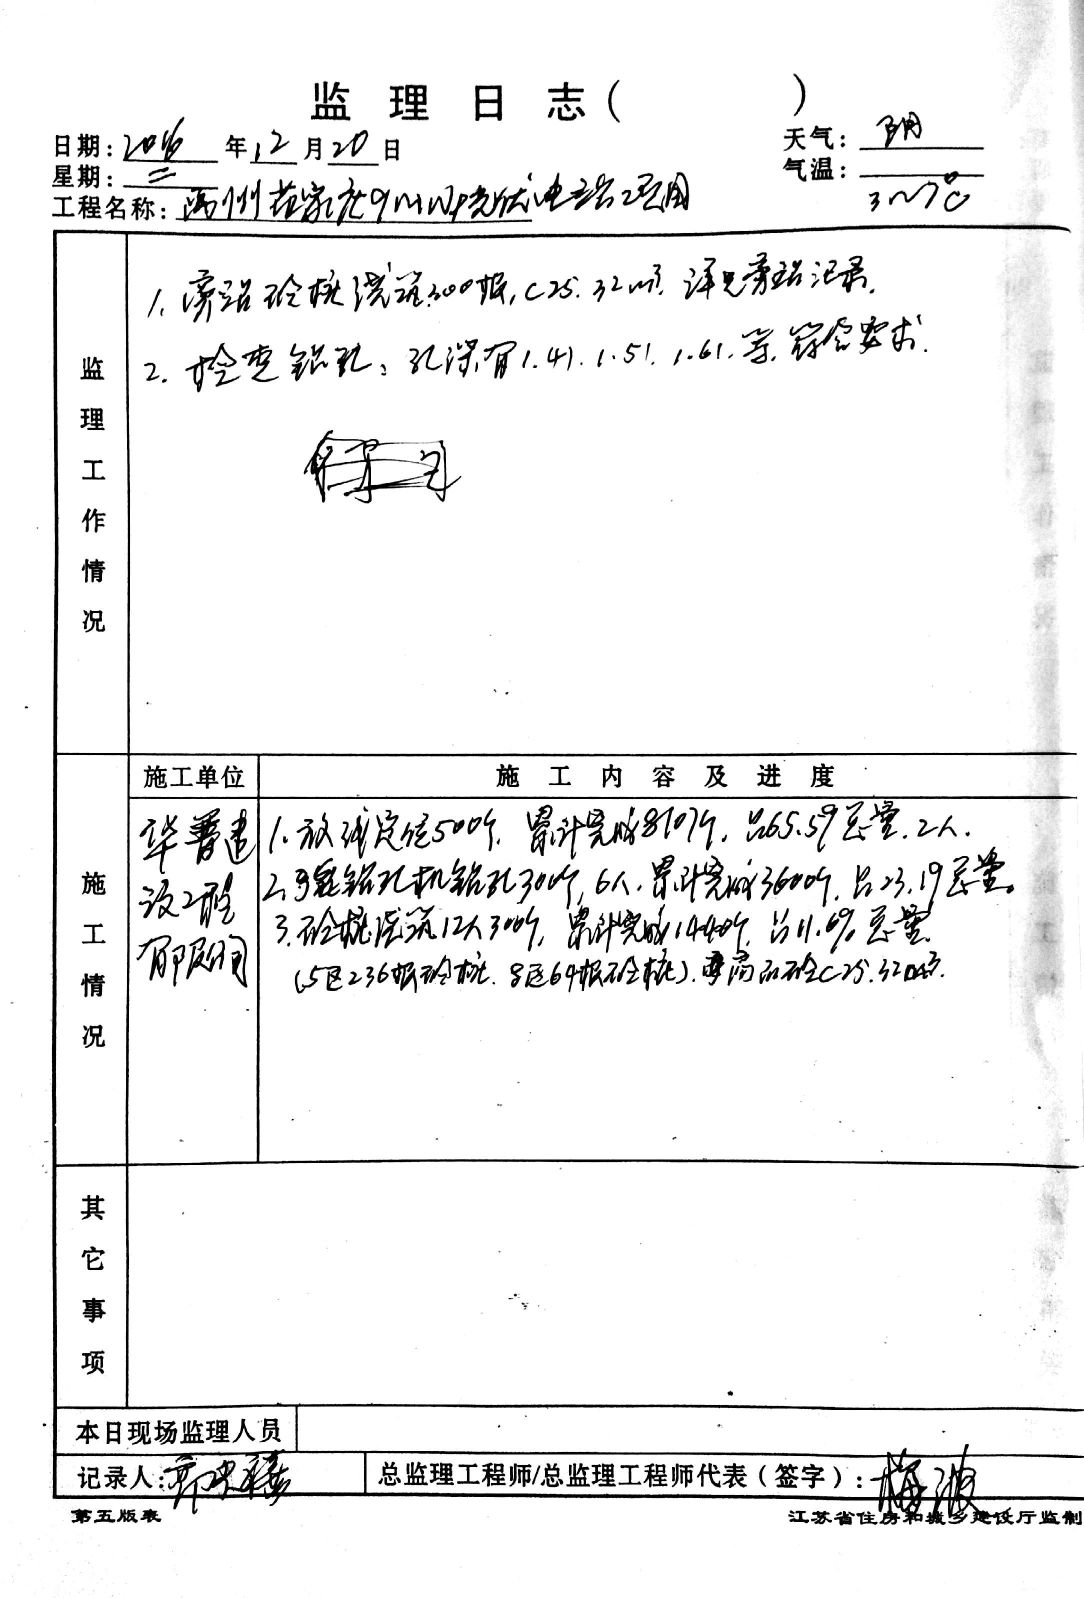 监理日志（ ）
日期：2016年12月20日
天气：阴
星期：二
气温：3~7℃
工程名称：州庄9MWP光伏电站项目
监理工作情况
1. 旁站砼桩浇筑300根，C25. 32m³. 详见旁站记录.
2. 检查钻孔：孔深有1.41. 1.51. 1.61. 等. 符合要求.
施工情况
施工单位
施工内容及进度
华普建
设工程
1. 放线定位500个. 累计完成8107个. 占65.5% 总量. 2人.
2. 钻孔机钻孔300个, 6人. 累计完成3600个. 占23.1% 总量。
3. 砼桩浇筑12人300个. 累计完成1440个. 占11.6% 总量.
(5区236根砼桩. 8区64根砼桩). 商品砼C25. 32m³.
其它事项
本日现场监理人员
记录人：
总监理工程师/总监理工程师代表（签字）：梅波
第五版表
江苏省住房和城乡建设厅监制